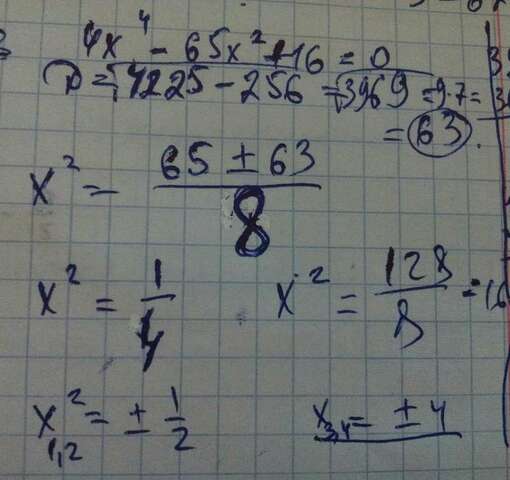 4x⁴ - 65x² + 16 = 0
D = √4225 - 256 = √3969 = 9·7 =
= 63.
x² = (65 ± 63)/8
x² = 1/4 x² = 128/8 = 16
x²₁,₂ = ± 1/2 x₃,₄ = ± 4